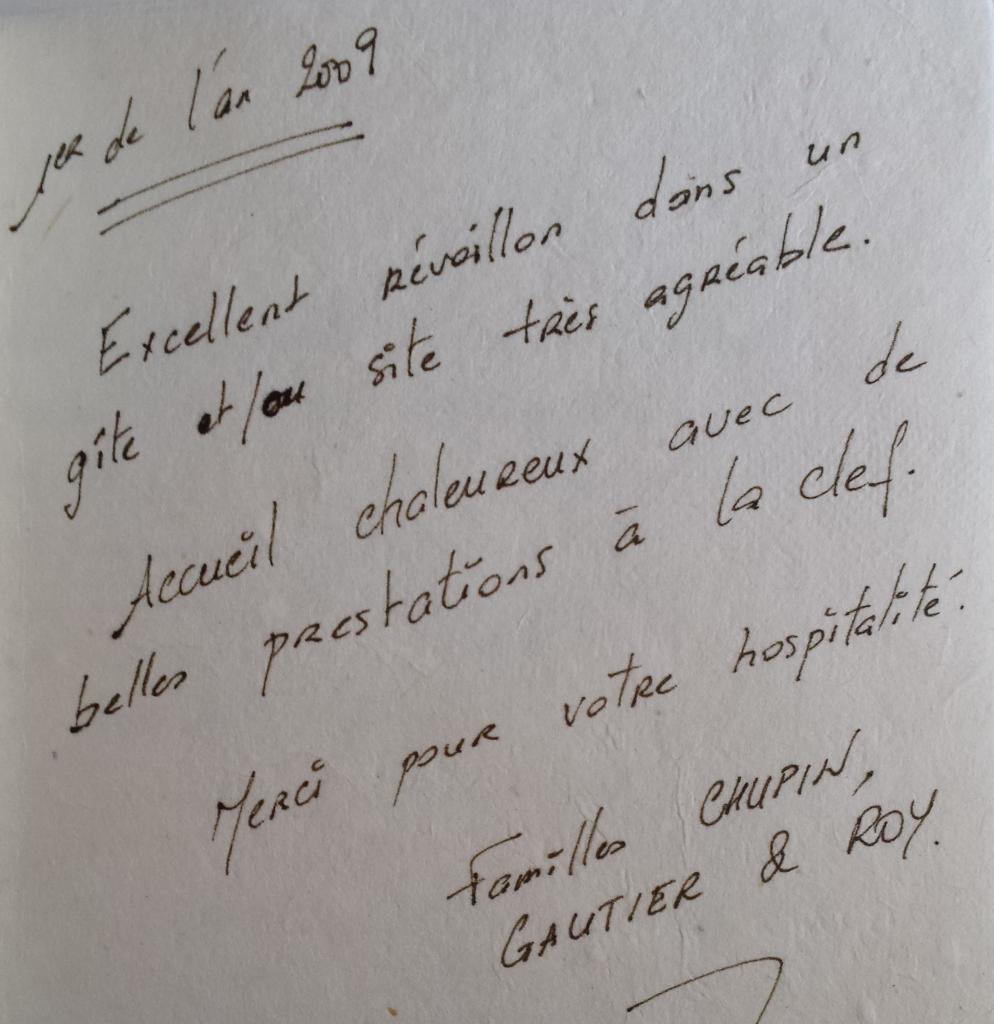 1er de l'an 2009
Excellent réveillon dans un
gîte et/ou site très agréable.
Accueil chaleureux avec de
belles prestations à la clef.
Merci pour votre hospitalité.
Familles CHUPIN,
GAUTIER & ROY.